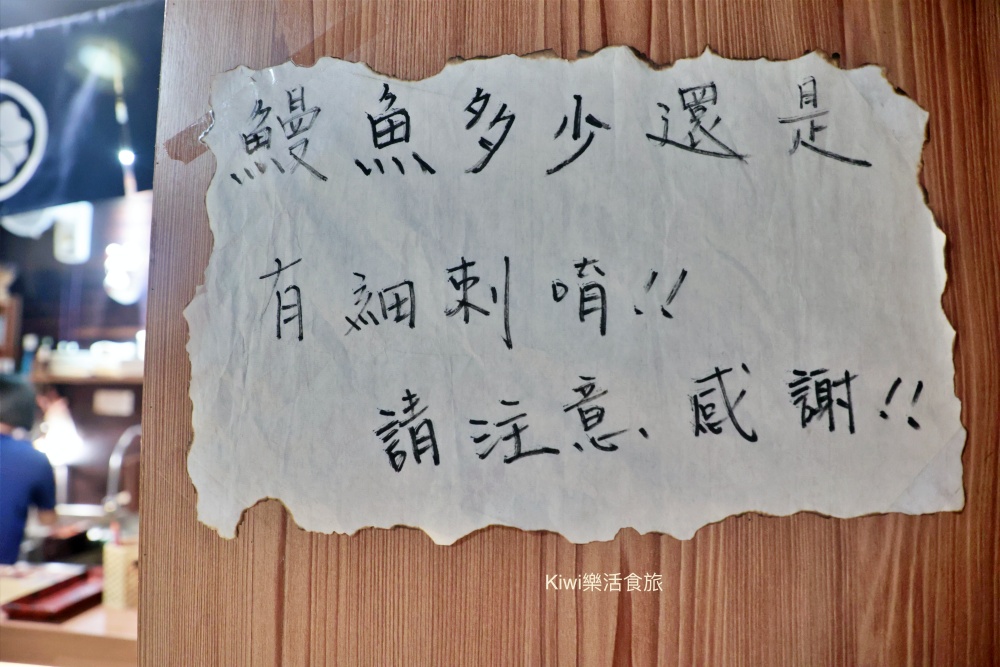 鰻魚多少還是
有細刺唷!!
請注意、感謝!!
Kiwi樂活食旅